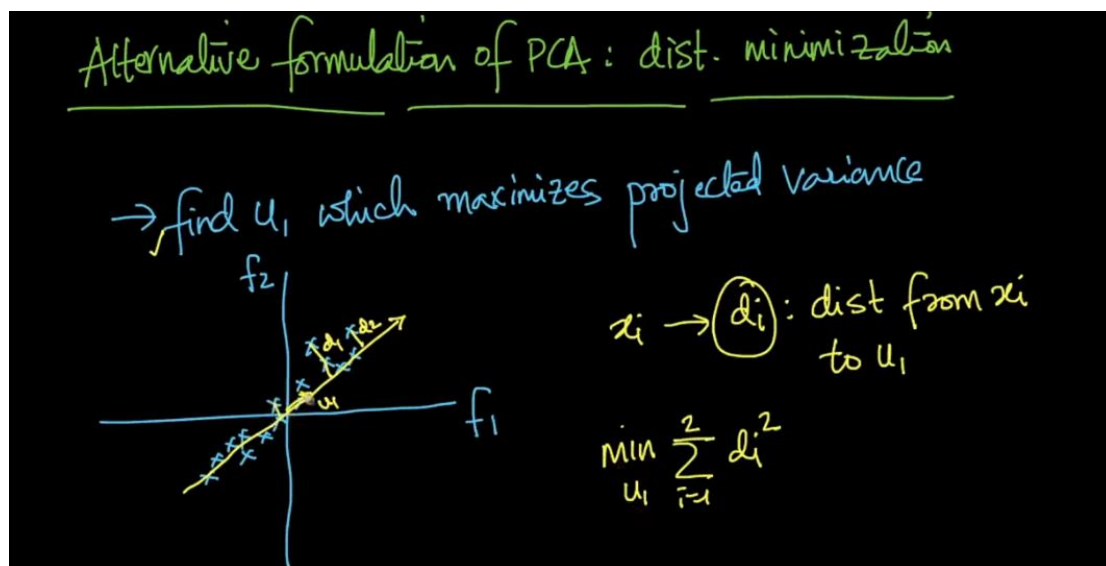 Alternative formulation of PCA: dist. minimization
→ find u₁ which maximizes projected variance
f₂
d₁ d₂
u₁
f₁
xᵢ → dᵢ : dist from xᵢ
to u₁
min ∑ dᵢ²
2
u₁ i=1